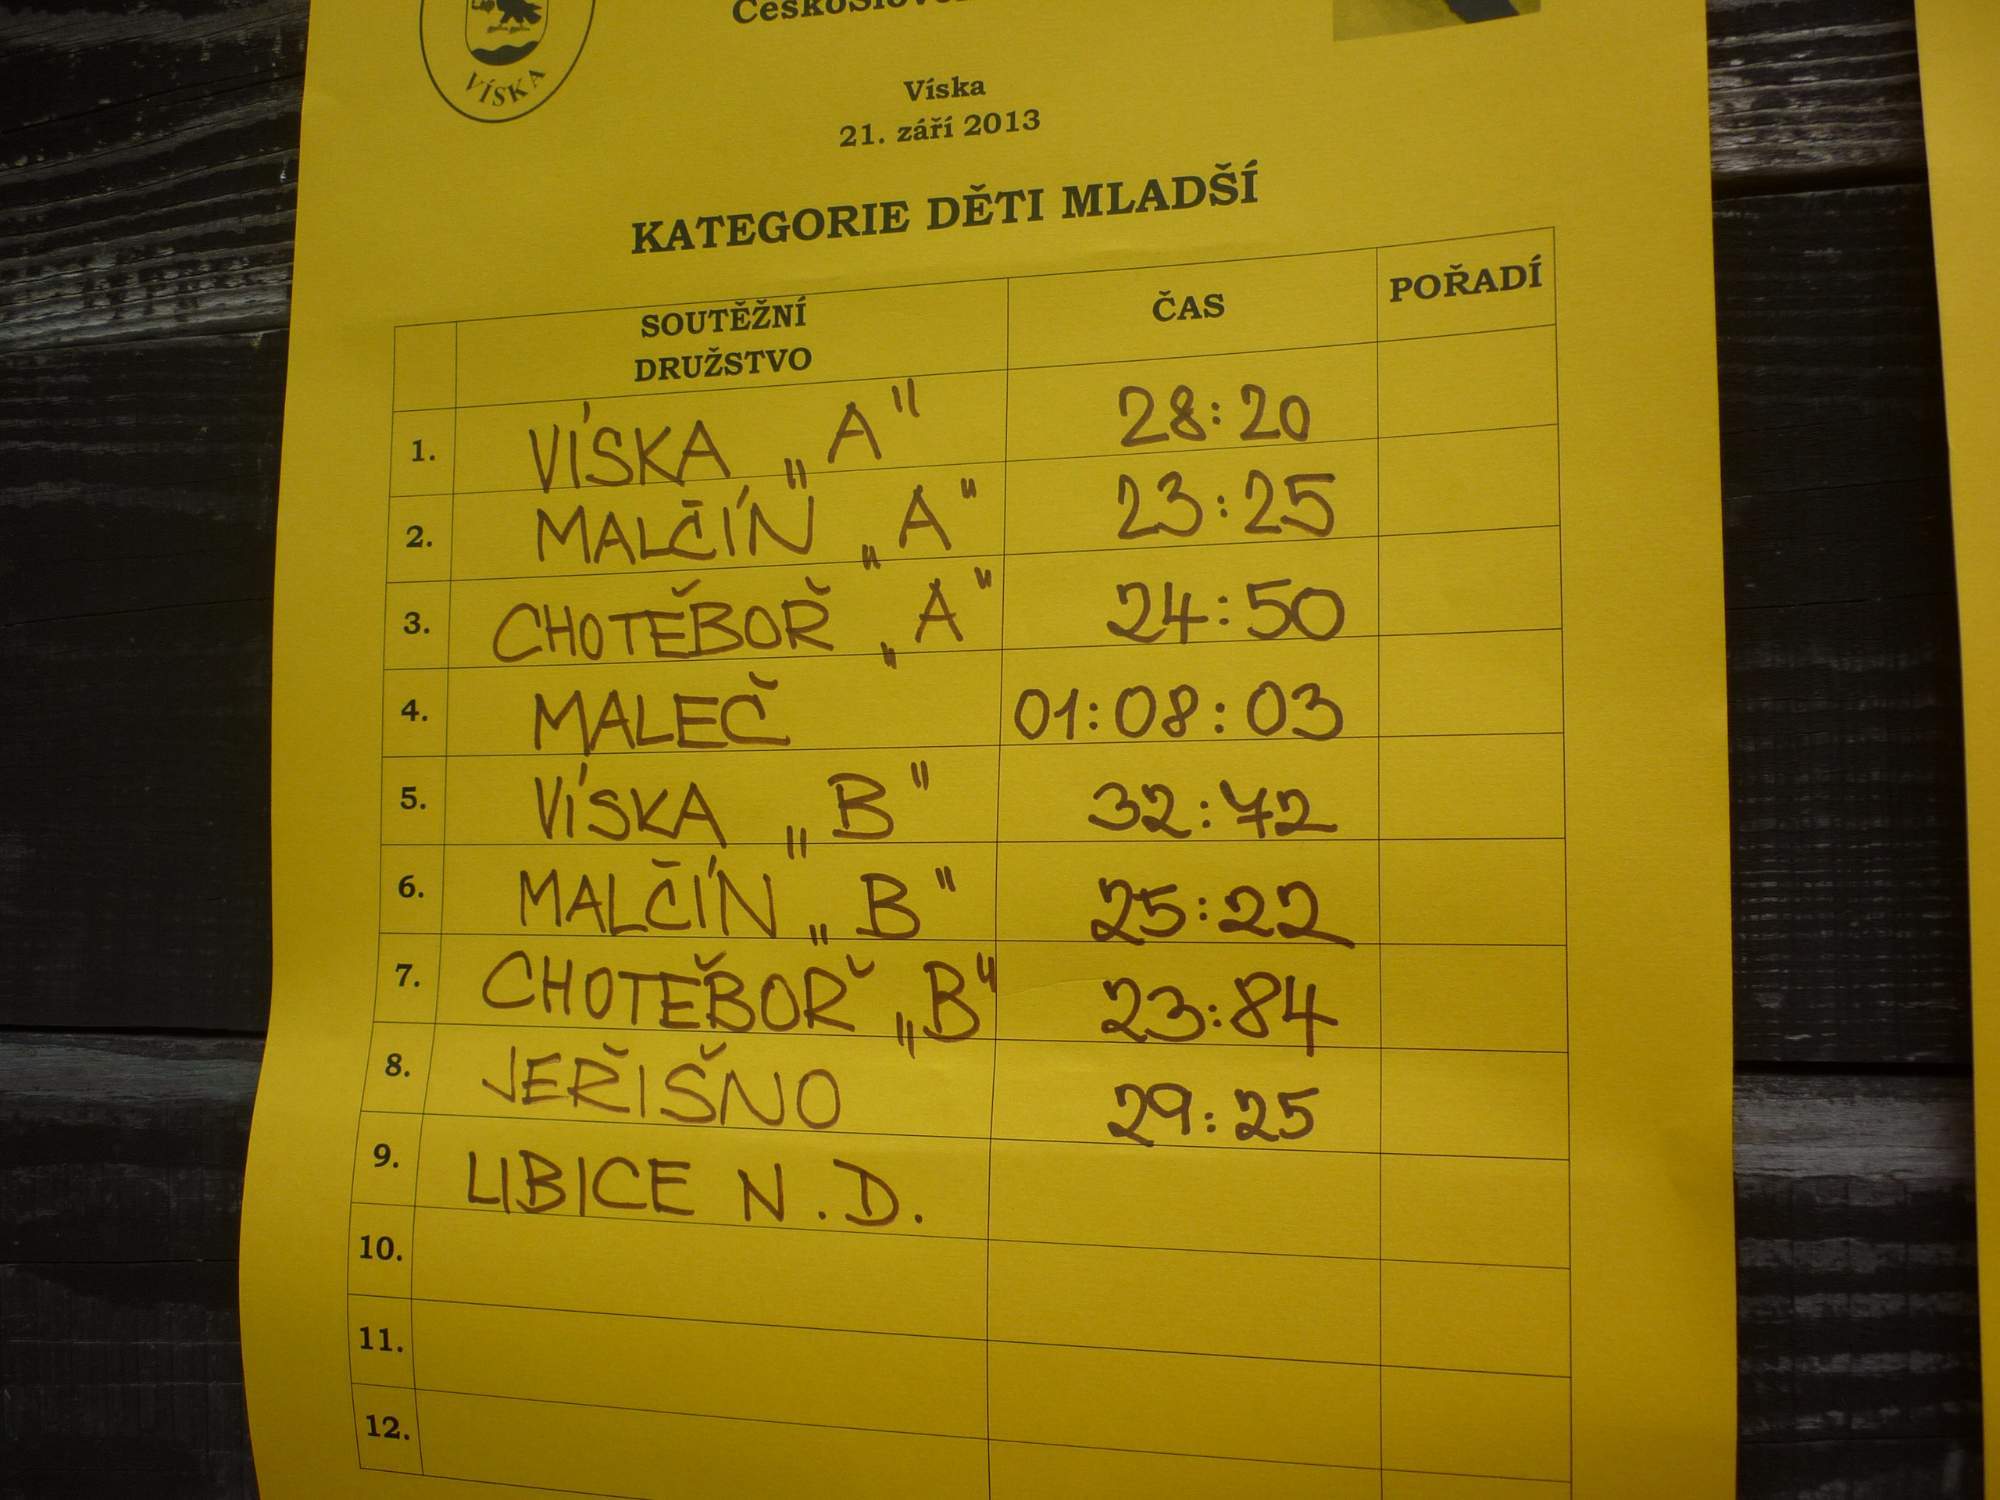 VÍSKA
Víska
21. září 2013
KATEGORIE DĚTI MLADŠÍ
SOUTĚŽNÍ DRUŽSTVO ČAS POŘADÍ
1. VÍSKA „A" 28:20
2. MALČÍN „A" 23:25
3. CHOTĚBOŘ „A" 24:50
4. MALEČ 01:08:03
5. VÍSKA „B" 32:72
6. MALČÍN „B" 25:22
7. CHOTĚBOŘ „B" 23:84
8. JEŘIŠNO 29:25
9. LIBICE N.D.
10.
11.
12.